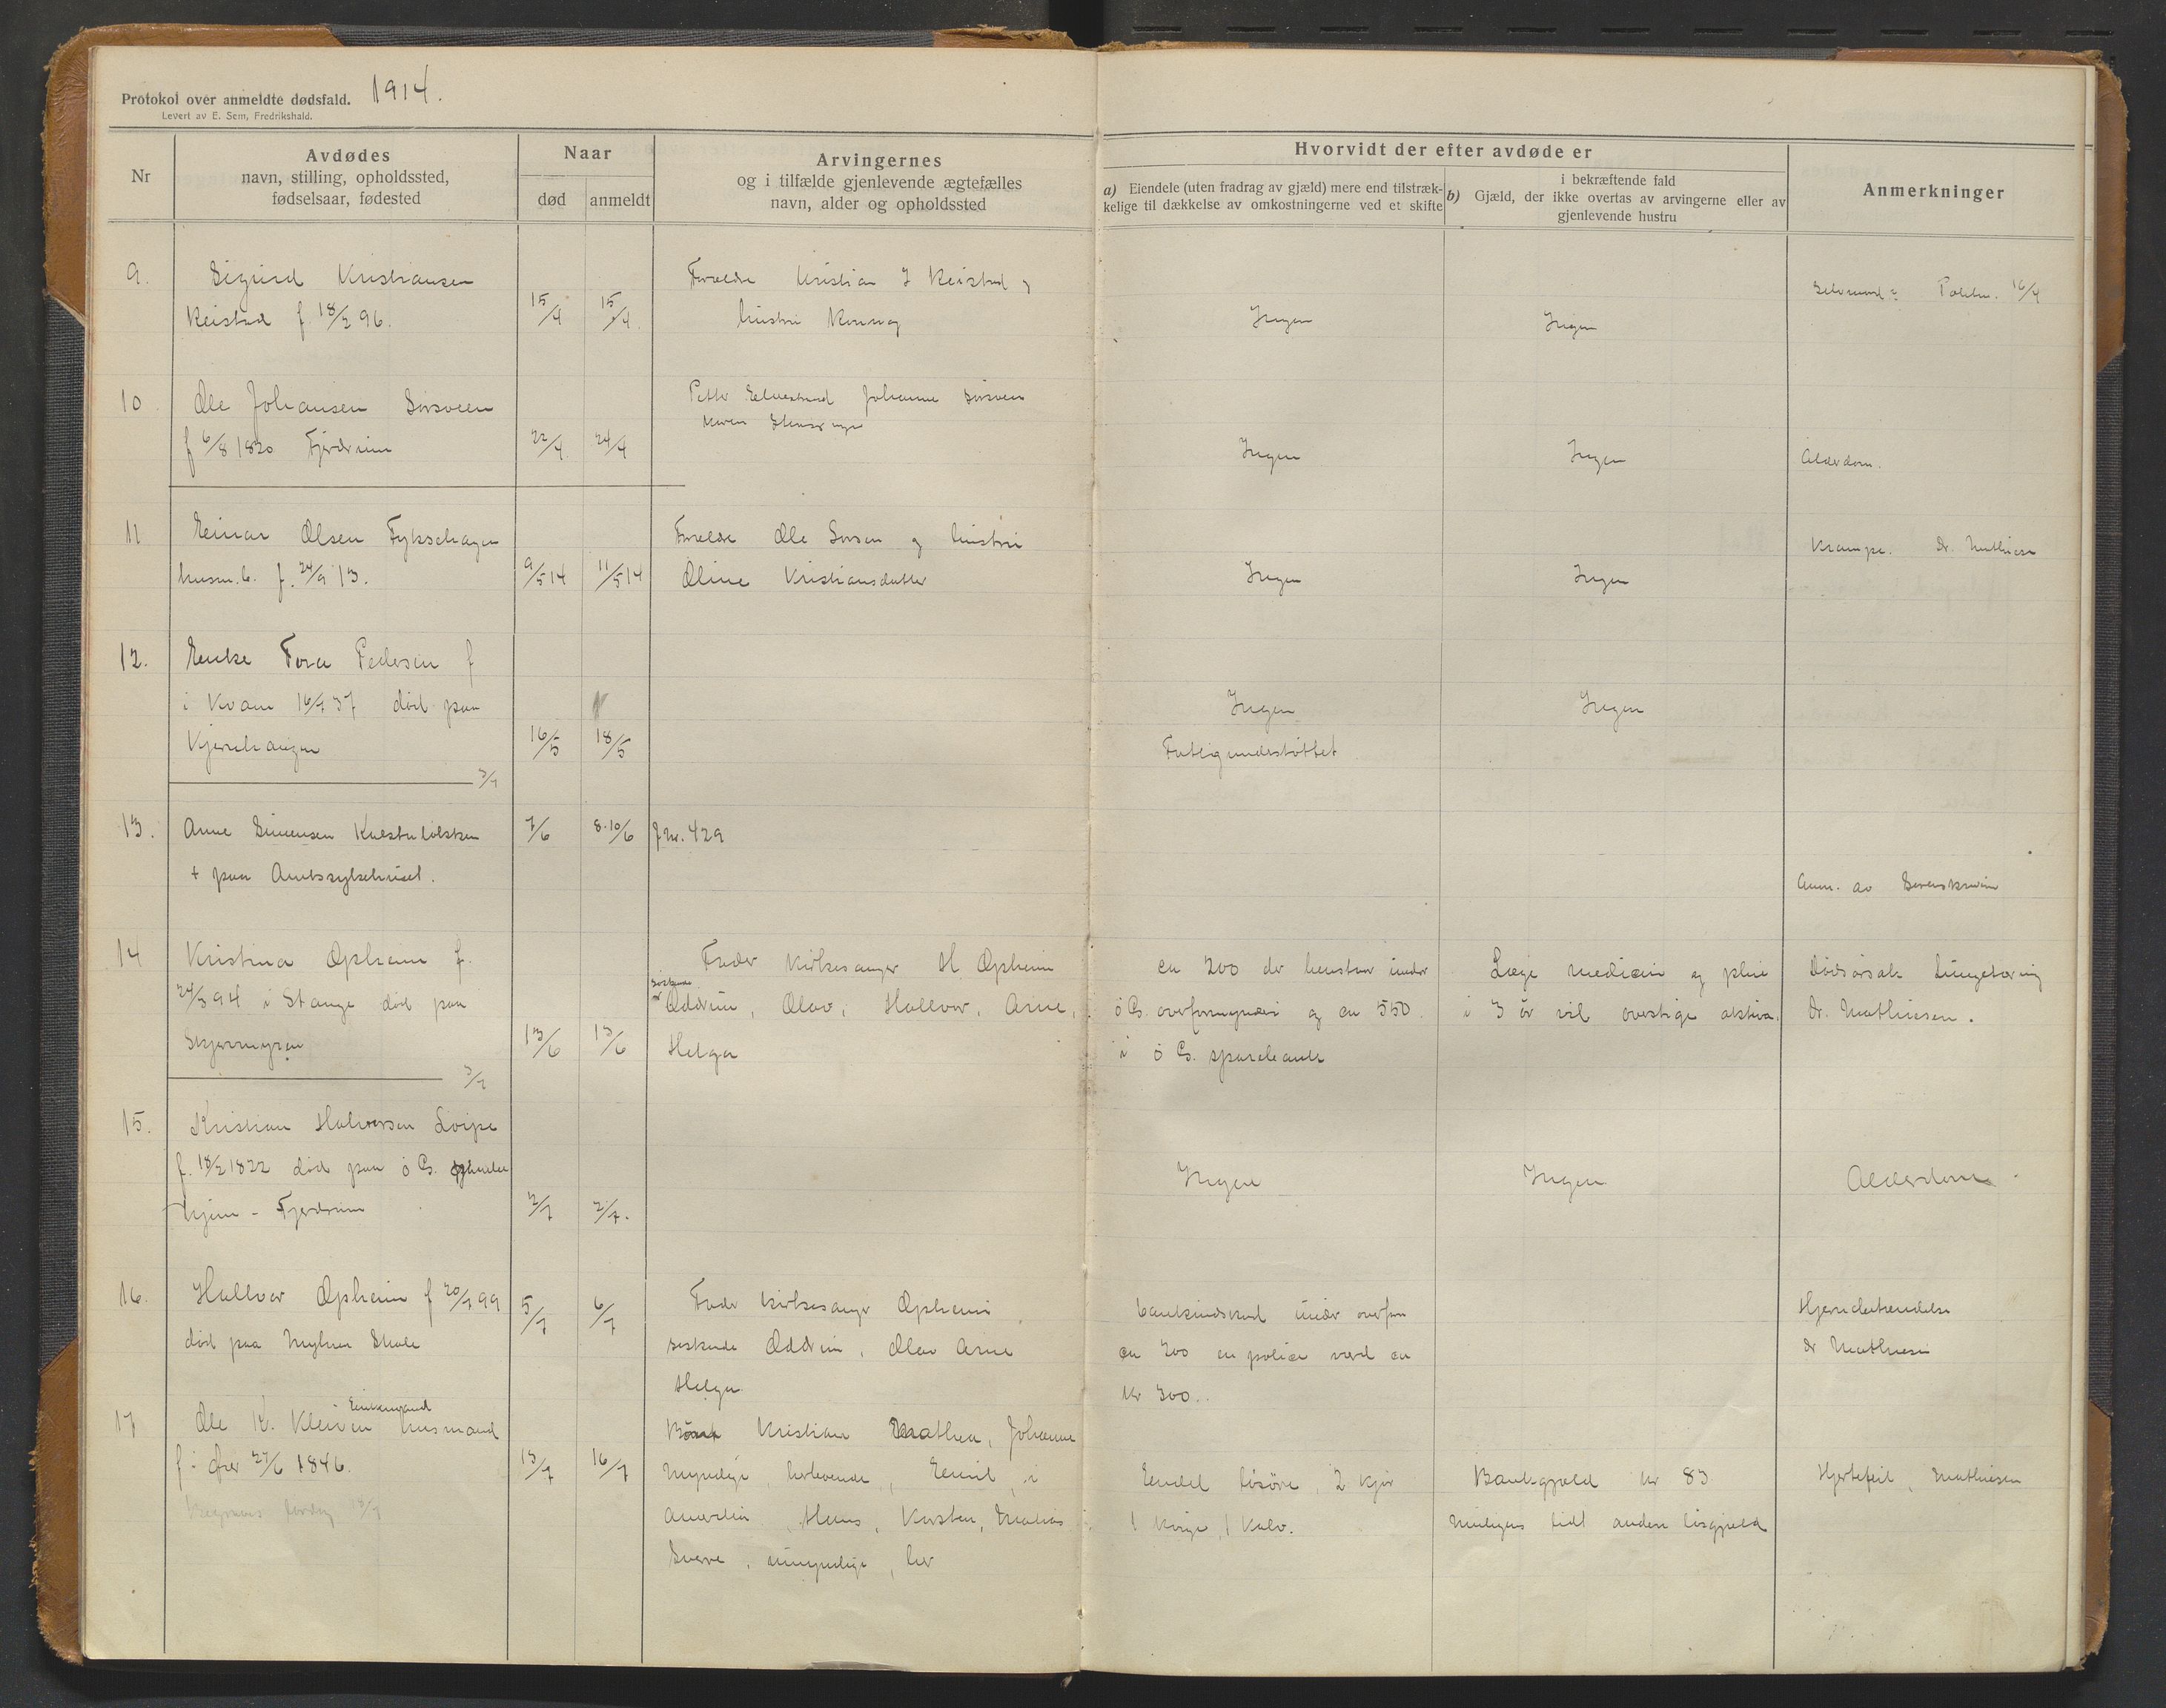 Protokol over anmeldte dødsfald. 1914.
Levert av E. Sem, Fredrikshald.
Nr
Avdødes
navn, stilling, opholdssted,
fødselsaar, fødested
Naar
død
anmeldt
Arvingernes
og i tilfælde gjenlevende ægtefælles
navn, alder og opholdssted
Hvorvidt der efter avdøde er
a) Eiendele (uten fradrag av gjæld) mere end tilstræk-
kelige til dækkelse av omkostningerne ved et skifte
i bekræftende fald
b) Gjæld, der ikke overtas av arvingerne eller av
gjenlevende hustru
Anmerkninger
9. Sigurd Kristiansen
Keistad f. 18/2 96.
15/4
15/4.
Forældre Kristian J Keistad og
hustru
Ingen
Ingen
16/4
10 Ole Johansen Sørsveen
f 6/8 1820 Fjerdrum
22/4.
24/4
Petter Johanne Sørsveen
Maren
Ingen
Ingen
Alderdom.
11 Einar Olsen
husm.b. f. 24/9 13.
9/5 14
11/5 14
Forældre Ole og hustru
Oline Kristiansdatter
Ingen
Ingen
Krampe. Dr. Mathiesen
12. Enke Tora Pedersen f
i Kvam 16/7 37 død paa
Kjernhaugen
3/7
16/5
18/5
Ingen
Fattigunderstøttet
Ingen
13. Arne Simensen
+ paa Amtssykehuset.
7/6
8-10/6
J nr. 429
Anm. av Sorenskriveren
14 Kristina Opheim f.
24/3 94 i Stange død paa
Skjermyren
3/7
13/6
13/6
Fader Kirkesanger H Opheim
søskende
Oddrun, Olav, Hallvor, Arne,
Helga
ca 200 der henstaar under
ø G. overformynderi og ca 550.
i ø G. sparebank
Læge medicin og pleie
i 3 år vil overstige aktiva.
Dødsårsak Lungetæring
Dr. Mathiesen.
15. Kristian Halvorsen Løipe
f. 18/2 1822 død paa ø G. gamle
hjem - Fjerdrum
2/7
2/7.
Ingen
Ingen
Alderdom
16. Hallvor Opheim f 20/7 99
død paa Myhren Skole
5/7
6/7
Fader Kirkesanger Opheim
søskende Oddrun, Olav Arne
Helga
bankindskud under overfor
ca 200 en police værd ca
kr 300.
Hjernebetændelse
dr Mathiesen
17 Ole K. Kleiven Enkemand husmand
f i Øier 27/6 1846.
13/7
16/7
Børn Kristian Mathea, Johanne
myndige, herboende, Emil, i
Amerika, Hans, Karsten, Mathias
Sverre, umyndige, her
Endel løsøre, 2 kjør
1 kvige, 1 kalv.
Bankgjæld kr 83
muligens lidt anden løsgjæld
Hjertefeil, Mathiesen